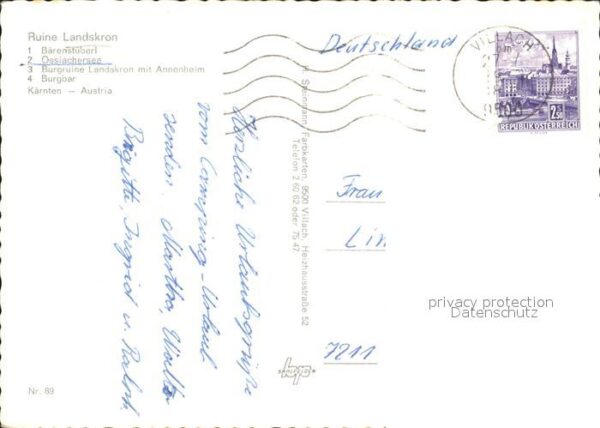 Ruine Landskron
1 Bärenstüberl
2 Ossiachersee
3 Burgruine Landskron mit Annenheim
4 Burgbar
Kärnten – Austria
Deutschland
VILLACH
9500
2.50
REPUBLIK ÖSTERREICH
Herzliche Urlaubsgrüße
vom Camping-Urlaub
senden Martha, Walter
Brigitte, Ingrid u. Ralph.
Steinmann, Farbkarten, 9500 Villach, Heizhausstraße 52
Telefon 2 60 62 oder 75 47
Frau
Lin
7211
privacy protection
Datenschutz
Nr. 89